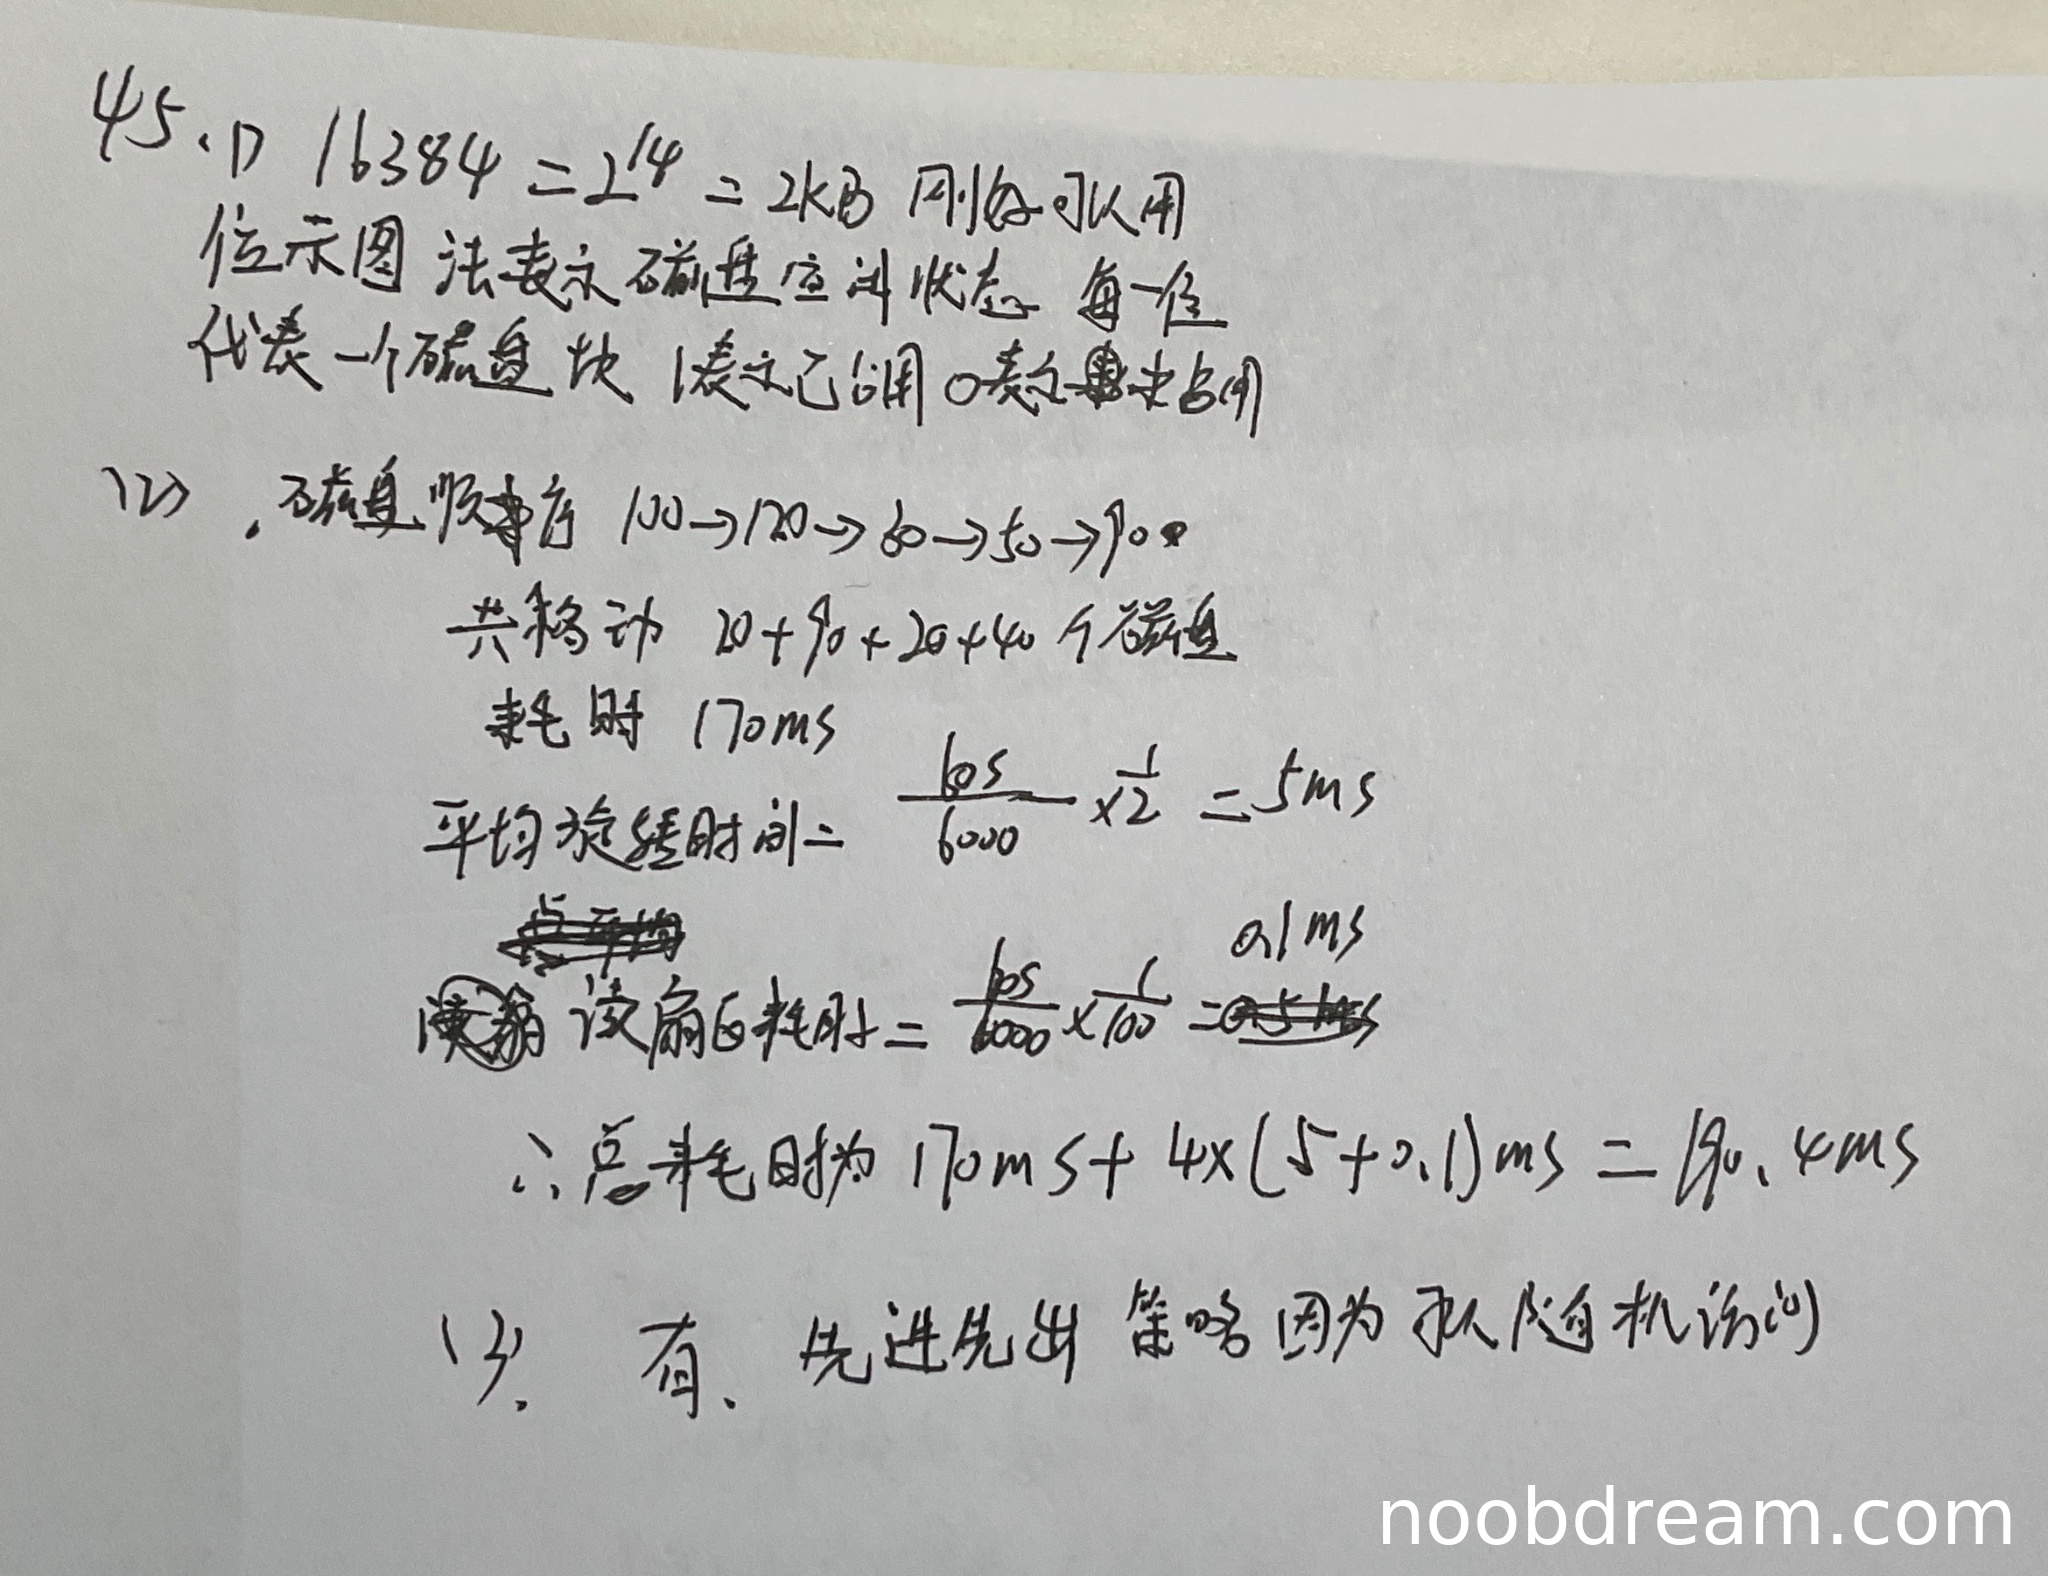 45.1) 16384=2^14 = 2KB 刚好可以用
位示图 法表示磁盘空闲状态 每一位
代表一个磁盘块 1表示已占用 0表示未占用
(2) .磁盘顺序 100→120→30→50→90
共移动 20+90+20+40 个磁盘
耗时 170ms
平均旋转时间= 60s/6000 × 1/2 = 5ms
0.1ms
读扇区耗时= 60s/6000 × 1/100 =
∴总耗时为 170ms+ 4×(5+0.1)ms = 190.4ms
(3). 有、先进先出 策略因为可以随机访问
noobdream.com